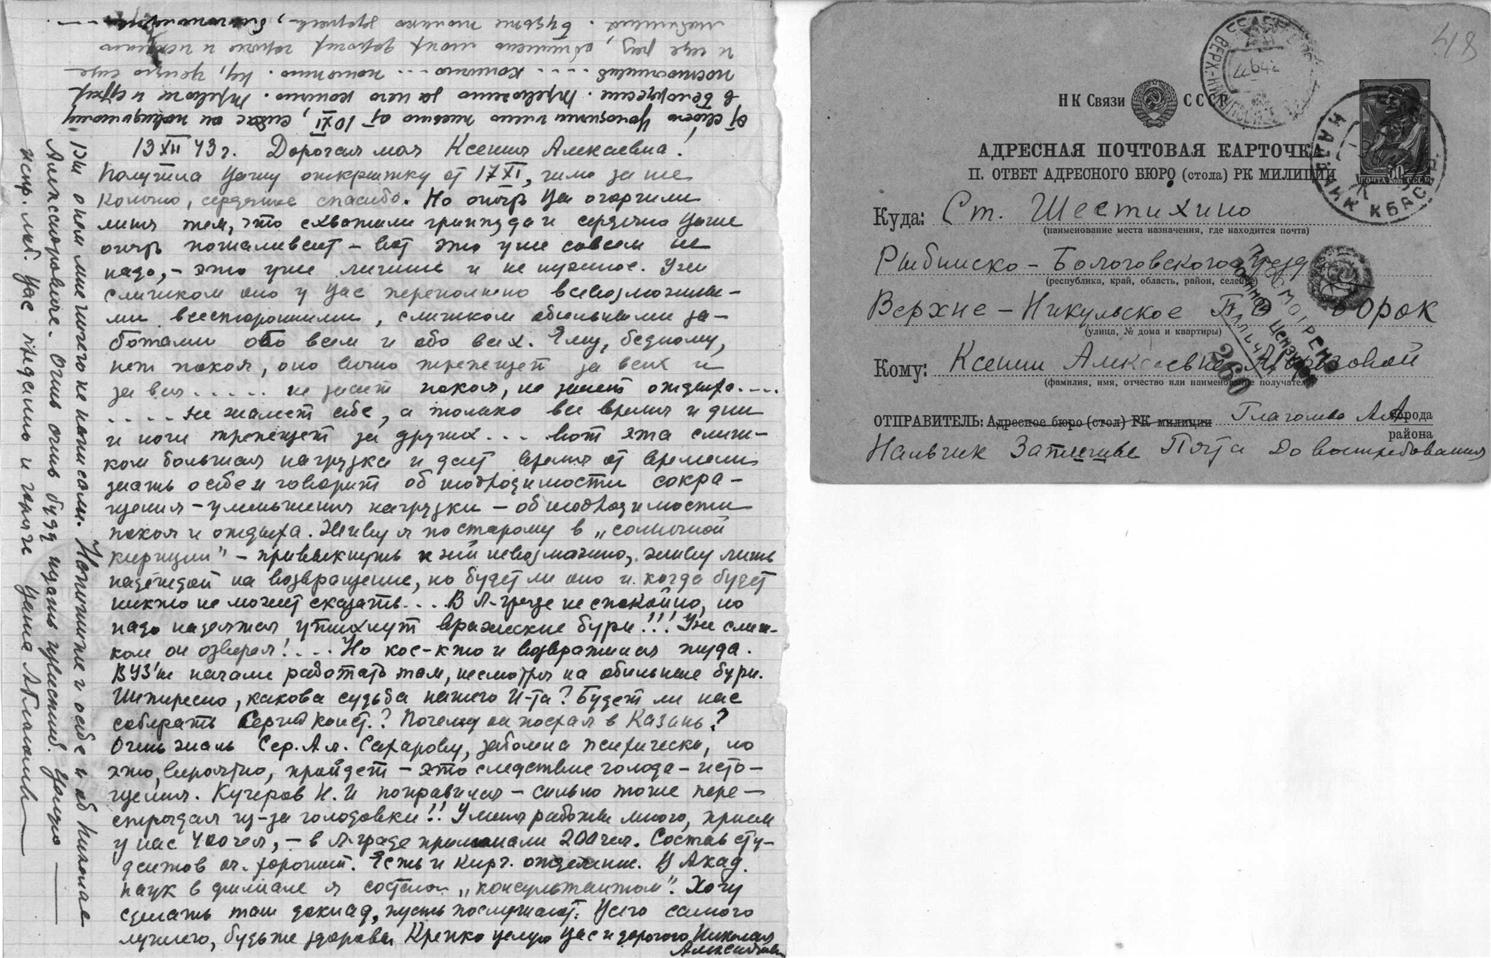 13 XII 43 г. Дорогая моя Ксения Алексеевна!
Получила Вашу открытку от 17 XI, за нее
конечно, сердечное спасибо. Но очень Вы огорчили
лишь тем, что схватили гриппуда и сердечко Ваше
очень пошаливает – вот это уже совсем не
надо, – это уже лишнее и не нужное. Уж
слишком оно у Вас переполнено всевозможны-
ми всесторонними, слишком обильными за-
ботами обо всем и обо всех. Ему, бедному,
нет покоя, оно вечно трепещет за всех и
за вся ..... не знает покоя, не знает отдыха....
.... не знает себе, а только все время и дни
и ночи трепещет за других... вот эта слиш-
ком большая нагрузка и дает время от времени
знать о себе и говорит об необходимости сокра-
щения – уменьшения нагрузки – об необходимости
покоя и отдыха. Живу я постарому в „солнечной
Киргизии" – привыкнуть к ней невозможно, живу лишь
надеждой на возвращение, но будет ли оно и когда будет
никто не может сказать... В Л-граде не спокойно, но
надо надеяться, утихнут вражеские бури!!! Уж слиш-
ком он озверел!.... Но кое-кто и возвратился туда.
ВУЗ'ы начали работать там, несмотря на обильные бури.
Интересно, какова судьба нашего И-та? Будет ли нас
собирать Сергей Конст.? Почему он поехал в Казань?
Очень жаль Сер. Ал. Сахарову, заболела психически, но
это, вероятно, пройдет – это следствие голода – исто-
щения. Кучеров Н. И поправился – сильно тоже пере-
страдал из-за голодовки!! У меня работы много, прием
у нас 400 чел, – в Л-граде принимали 200 чел. Состав сту-
дентов оч. хороший. Есть и кирг. отделение. В Акад.
наук в филиале я состою „консультантом". Хочу
сделать там доклад, пусть послушают. Всего самого
лучшего, будьте здоровы. Крепко целую Вас и дорогого Николая
Александровича
Эт он мне ничего не написали. Напишите о себе и об Николае
Александровиче. Очень очень буду ждать известий. Целую
искр. люб. Вас преданно и горячо Ваша
от 10 XI, сейчас он
в Белоруссии. Тревожно за него конечно.
конечно ... Ну, целую еще
и еще раз, обнимаю моих дорогих горячо и искренно
любимых. Будьте только здоровы,
48
НК Связи СССР
АДРЕСНАЯ ПОЧТОВАЯ КАРТОЧКА
П. ОТВЕТ АДРЕСНОГО БЮРО (стола) РК МИЛИЦИИ
Куда: Ст. Шестихино
(наименование места назначения, где находится почта)
Рыбинско-Бологовского
(республика, край, область, район, селение)
Верхне-Никульское П/О Борок
(улица, № дома и квартиры)
Кому: Ксении Алексеевне Морозовой
(фамилия, имя, отчество или наименование получателя)
ОТПРАВИТЕЛЬ: Адресное бюро (стол) РК милиции Глаголева А.А. города
района
Нальчик Почта До востребования
НАЛЬЧИК КБАССР
Военной Цензурой
260